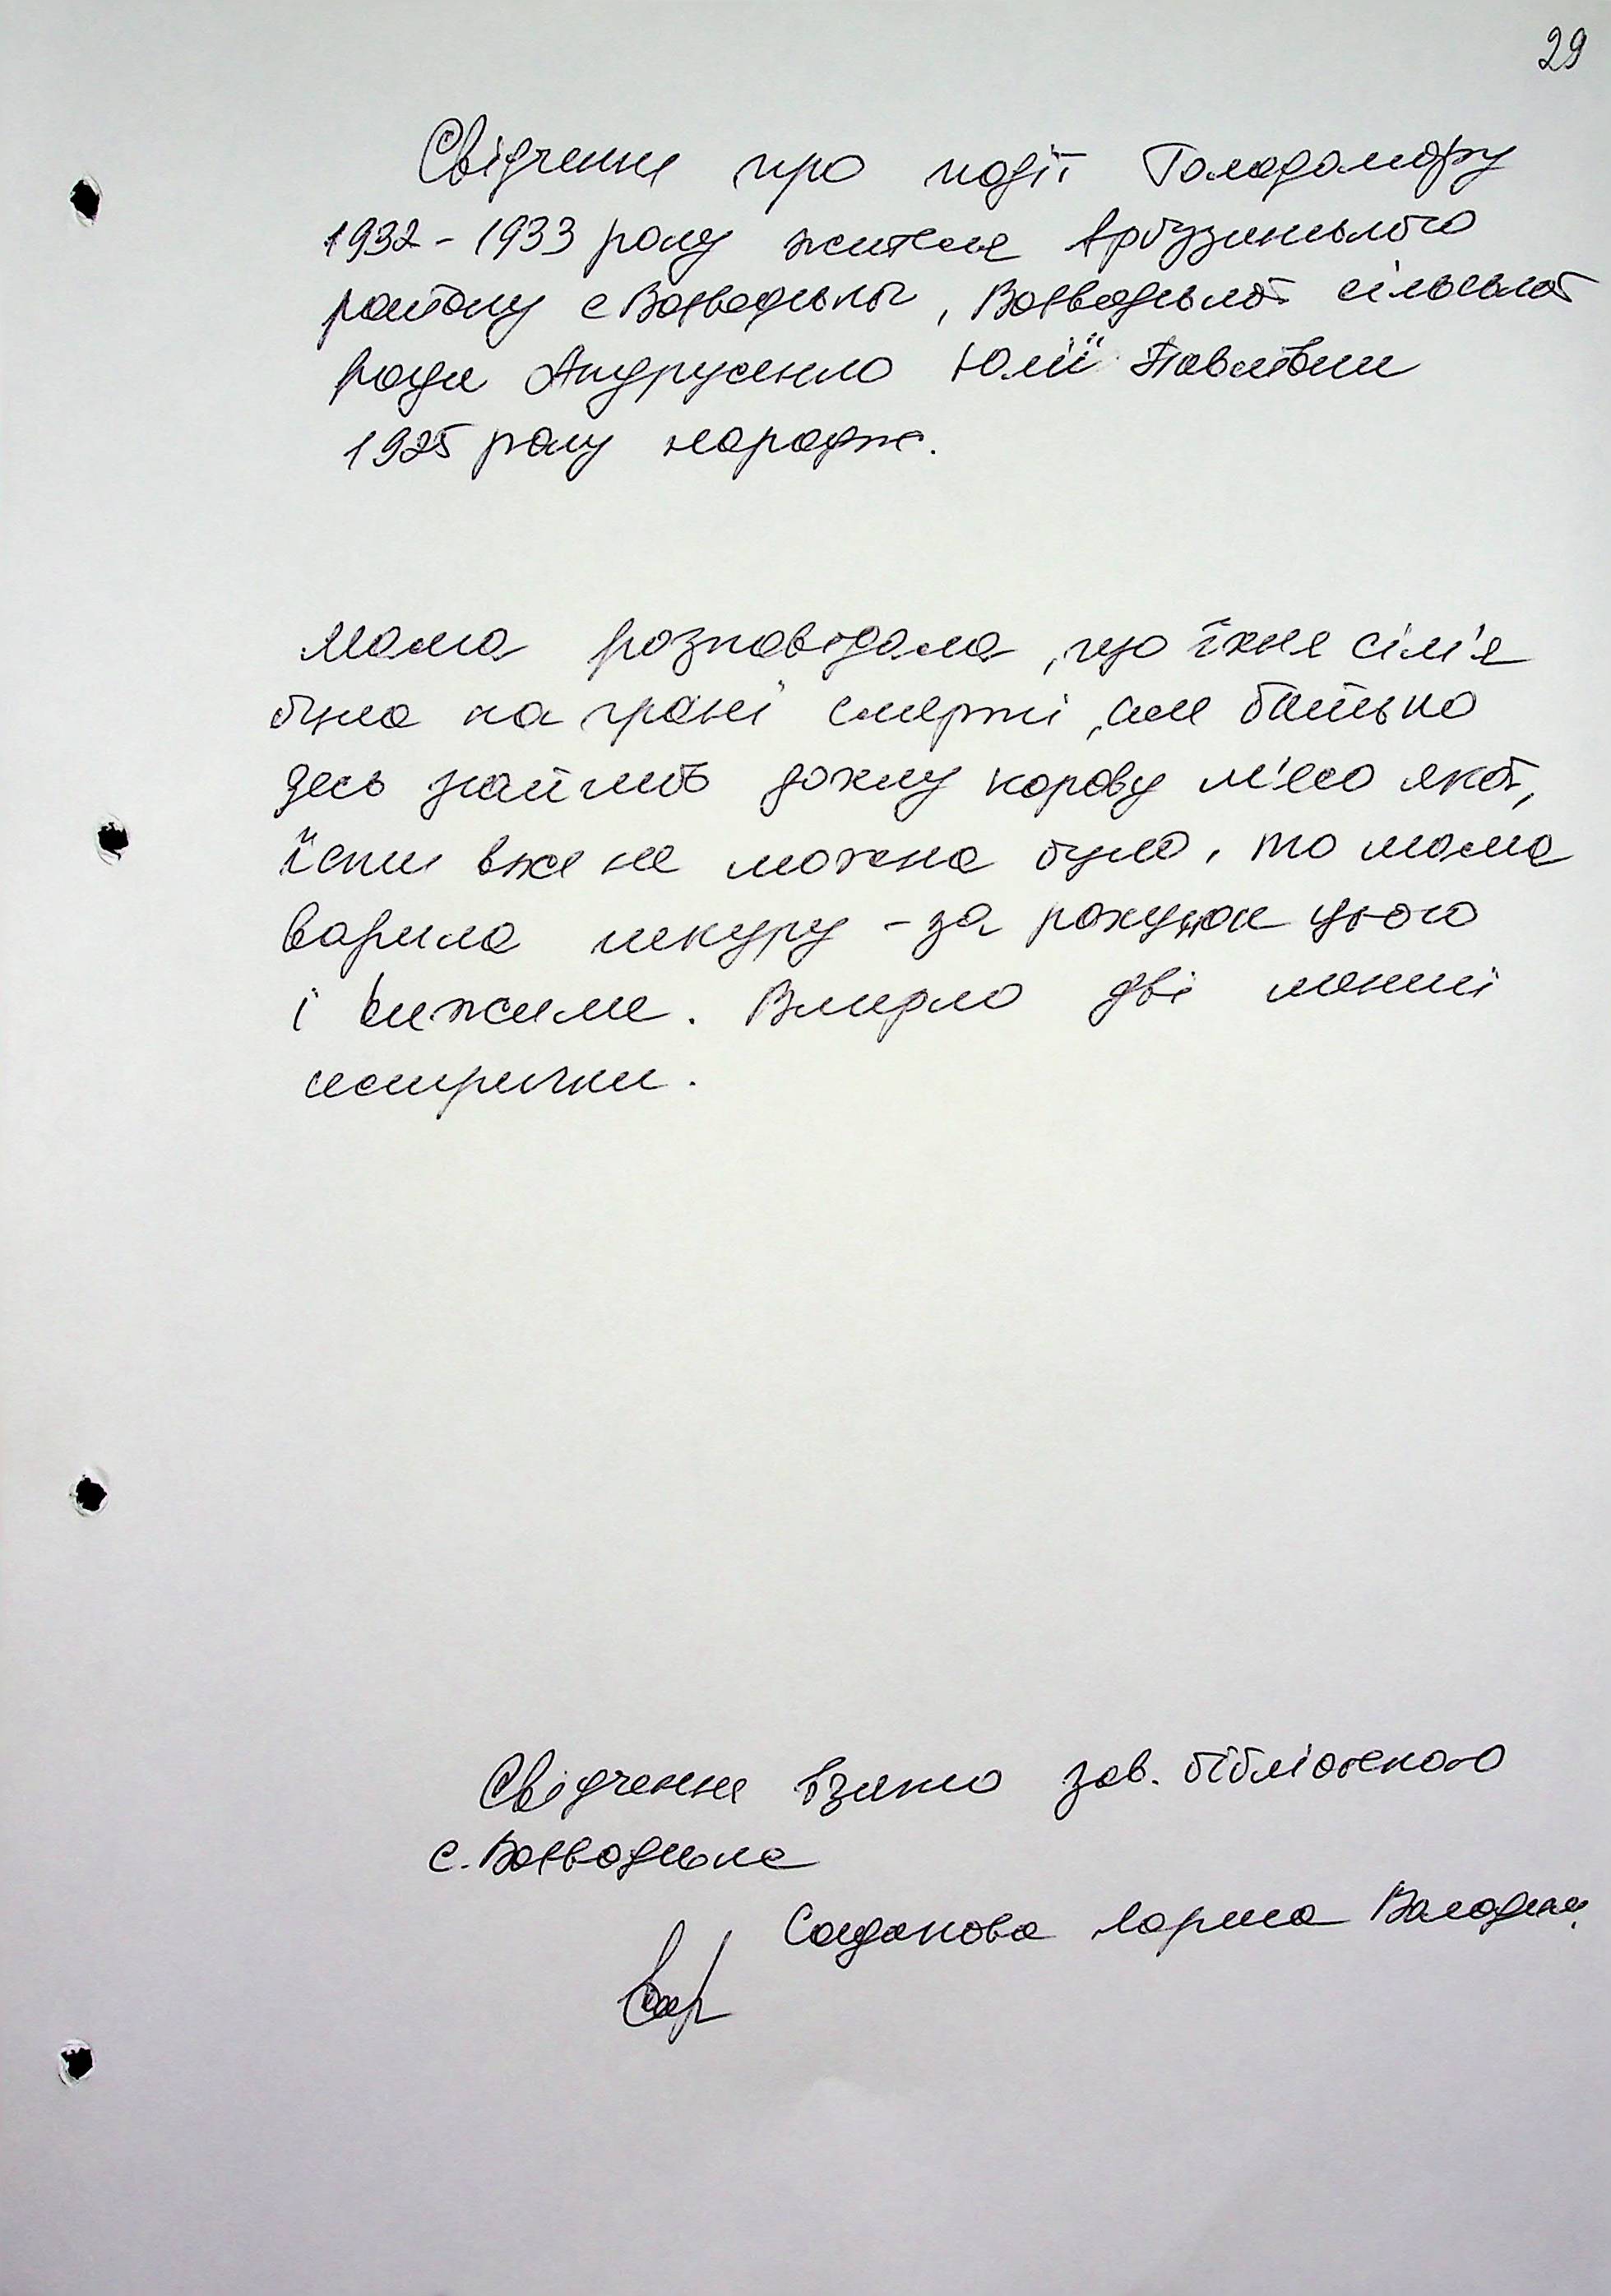 29
Свідчення про події Голодомору
1932-1933 року жителя Арбузинського
району с Воєводське, Воєводської сільської
ради Андрусенко Юлії Павлівни
1925 року народж.
Мама розповідала, що їхня сім'я
була на грані смерті, але батько
десь знайшов дохлу корову м'ясо якої,
їсти вже не можна було, то мама
варила шкуру - за рахунок цього
і вижили. Вмерло дві менші
сестрички.
Свідчення взято зав. бібліотекою
с. Воєводське
Лариса Володим.